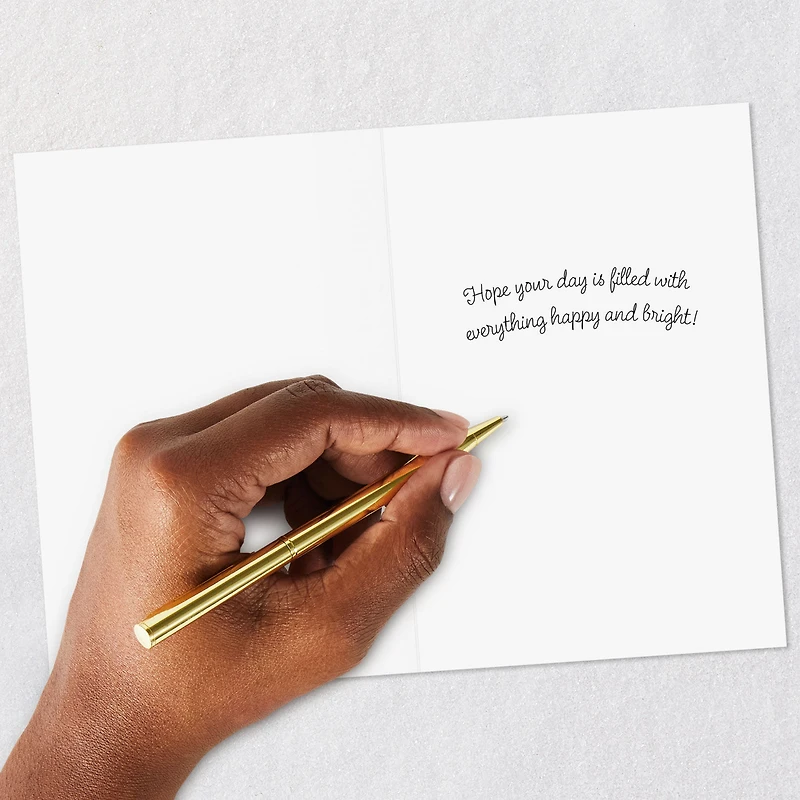 Hope your day is filled with
everything happy and bright!